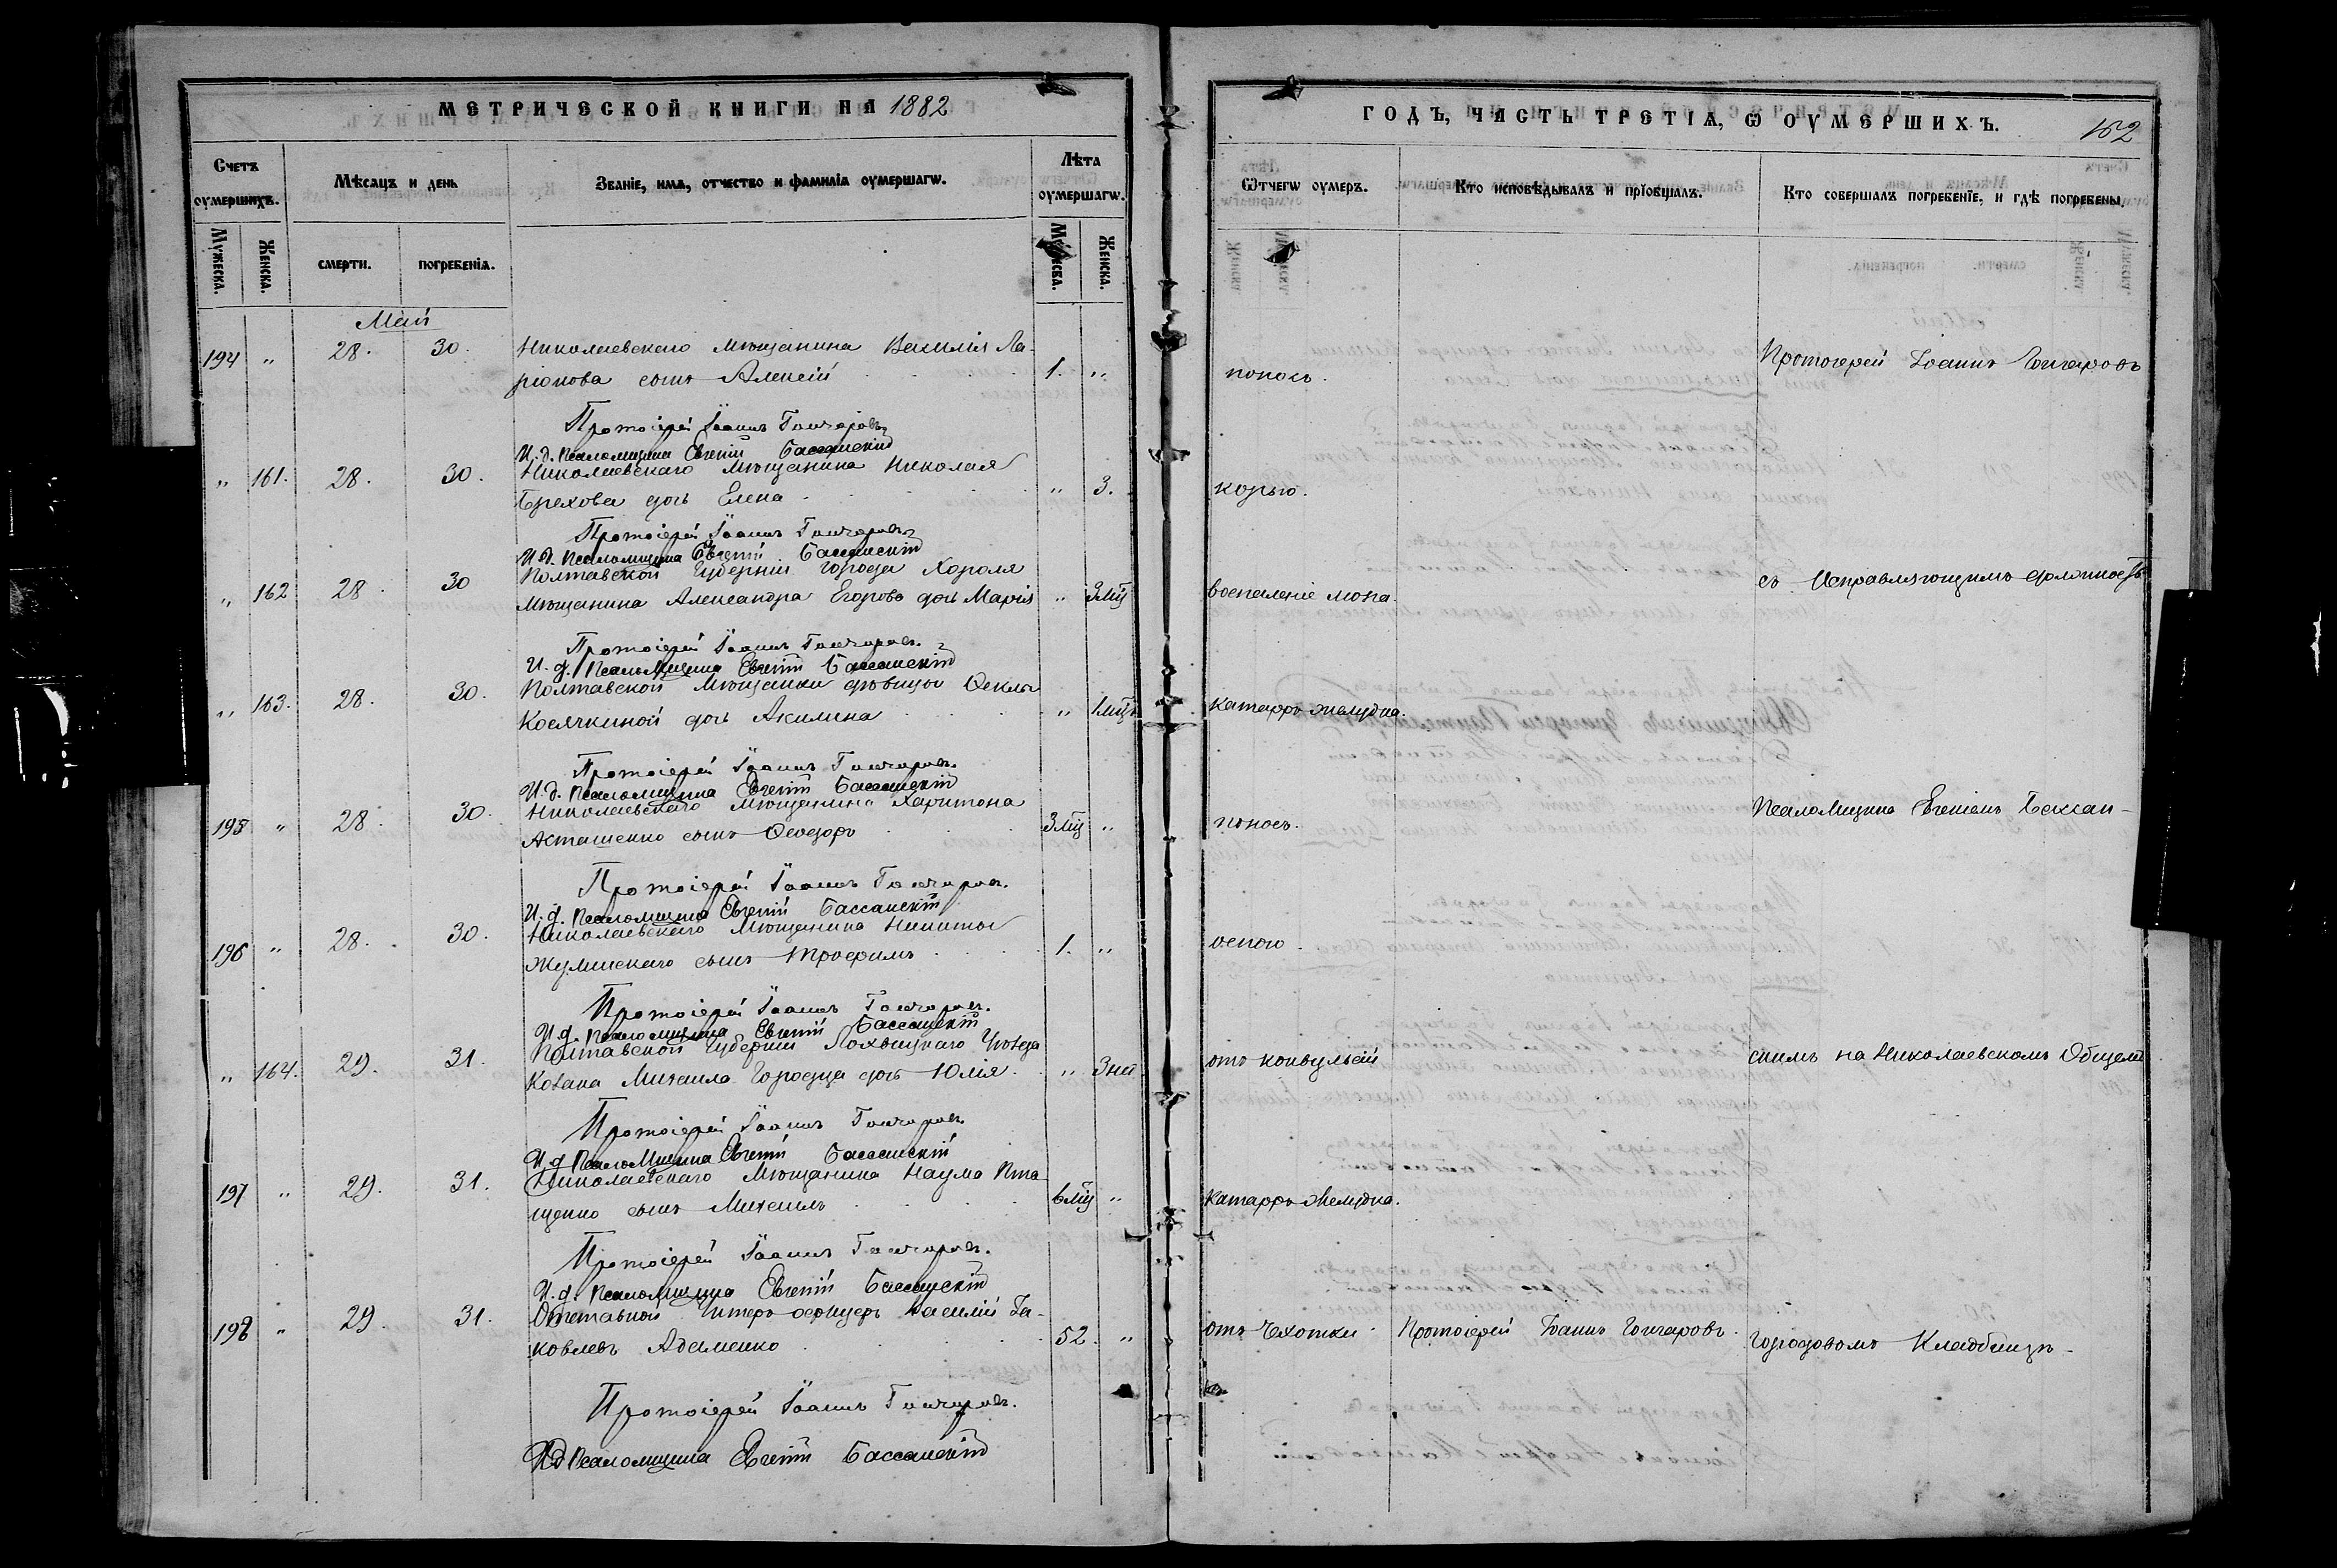 МЕТРИЧЕСКОЙ КНИГИ НА 1882
Счетъ оумершихъ.
Мѣсяцъ и день
Званіе, имя, отчество и фамилія оумершагѡ.
Лѣта оумершагѡ.
Мужеска.
Женска.
смерти.
погребенія.
Мужеска.
Женска.
Май
194 " 28. 30. Николаевскаго мѣщанина Василія Ла-
ріонова сынъ Алексій 1. "
Протоіерей Іоаннъ Гончаровъ
И. д. Псаломщика Евгеній Бассанскій
" 161. 28. 30. Николаевскаго мѣщанина Николая
Брехова дочь Елена " 3.
Протоіерей Іоаннъ Гончаровъ
И. д. Псаломщика Евгеній Бассанскій
" 162 28. 30 Полтавской Губерніи города Хороля
мѣщанина Александра Егорова дочь Марія " 3 мц
Протоіерей Іоаннъ Гончаровъ.
И. д. Псаломщика Евгеній Бассанскій
" 163. 28. 30. Полтавской мѣщанки дѣвицы Ѳеклы
Косячкиной дочь Акилина " 1 мцъ
Протоіерей Іоаннъ Гончаровъ.
И. д. Псаломщика Евгеній Бассанскій
195 " 28. 30. Николаевскаго мѣщанина Харитона
Акташенко сынъ Ѳеодоръ 3 мц "
Протоіерей Іоаннъ Гончаровъ.
И. д. Псаломщика Евгеній Бассанскій
196 " 28. 30. Николаевскаго мѣщанина Никиты
сынъ Трофимъ 1. "
Протоіерей Іоаннъ Гончаровъ.
И. д. Псаломщика Евгеній Бассанскій
" 164. 29. 31. Полтавской Губерніи Лохвицкаго Уѣзда
Козака Михаила Городца дочь Юлія " 3 нед
Протоіерей Іоаннъ Гончаровъ
И. д. Псаломщика Евгеній Бассанскій
197 " 29. 31. Николаевскаго мѣщанина Наума
сынъ Михаилъ 6 мц "
Протоіерей Іоаннъ Гончаровъ.
И. д. Псаломщика Евгеній Бассанскій
198 " 29. 31. Отставной Унтеръ офицеръ Василій Іа-
ковлевъ Адаменко 52. "
Протоіерей Іоаннъ Гончаровъ.
И д Псаломщика Евгеній Бассанскій
ГОДЪ, ЧАСТЬ ТРЕТІЯ, Ѡ ОУМЕРШИХЪ.
152
Ѿчегѡ оумеръ.
Кто исповѣдывалъ и пріобщалъ.
Кто совершалъ погребеніе, и гдѣ погребены.
поносъ.
Протоіерей Іоаннъ Гончаровъ
корью.
воспаленіе мозга.
съ Исправляющимъ должность
катарръ желудка.
поносъ.
Псаломщика Евгеніемъ Бассан-
оспою.
отъ конвульсій
скимъ на Николаевскомъ Общемъ
катарръ желудка.
отъ Чахотки
Протоіерей Іоаннъ Гончаровъ.
городовомъ Кладбищѣ.